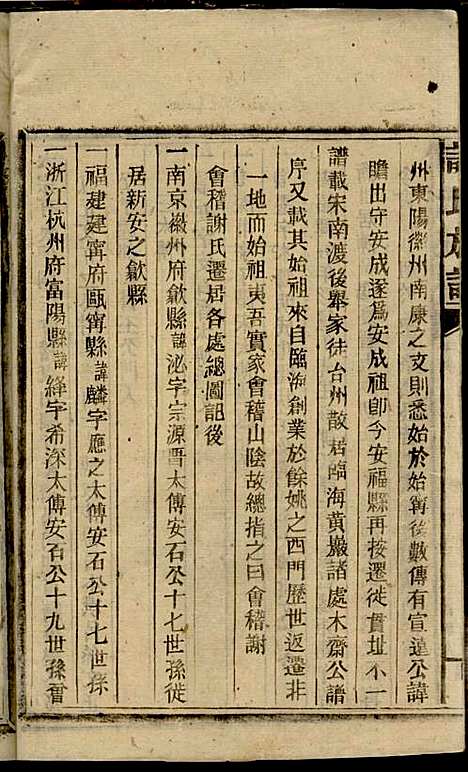 州東陽徽州南康之支則悉始於始甯後數傳有宣違公諱
瞻出守安成遂爲安成祖卽今安福縣再按遷徙貫址不一
譜載宋南渡後舉家徒台州散居臨海黃巖諸處木齋公譜
序又載其始祖來自臨海創業於餘姚之西門歷世返遷非
一地而始祖夷吾實家會稽山陰故總指之曰會稽謝
會稽謝氏遷居各處總圖詔後
一南京徽州府歙縣諱泌字宗源晋太傅安石公十七世孫徙
居新安之歙縣
一福建建甯府甌甯縣諱麟字應之太傅安石公十七世孫
一浙江杭州府富陽縣諱絳字希深太傅安石公十九世孫會